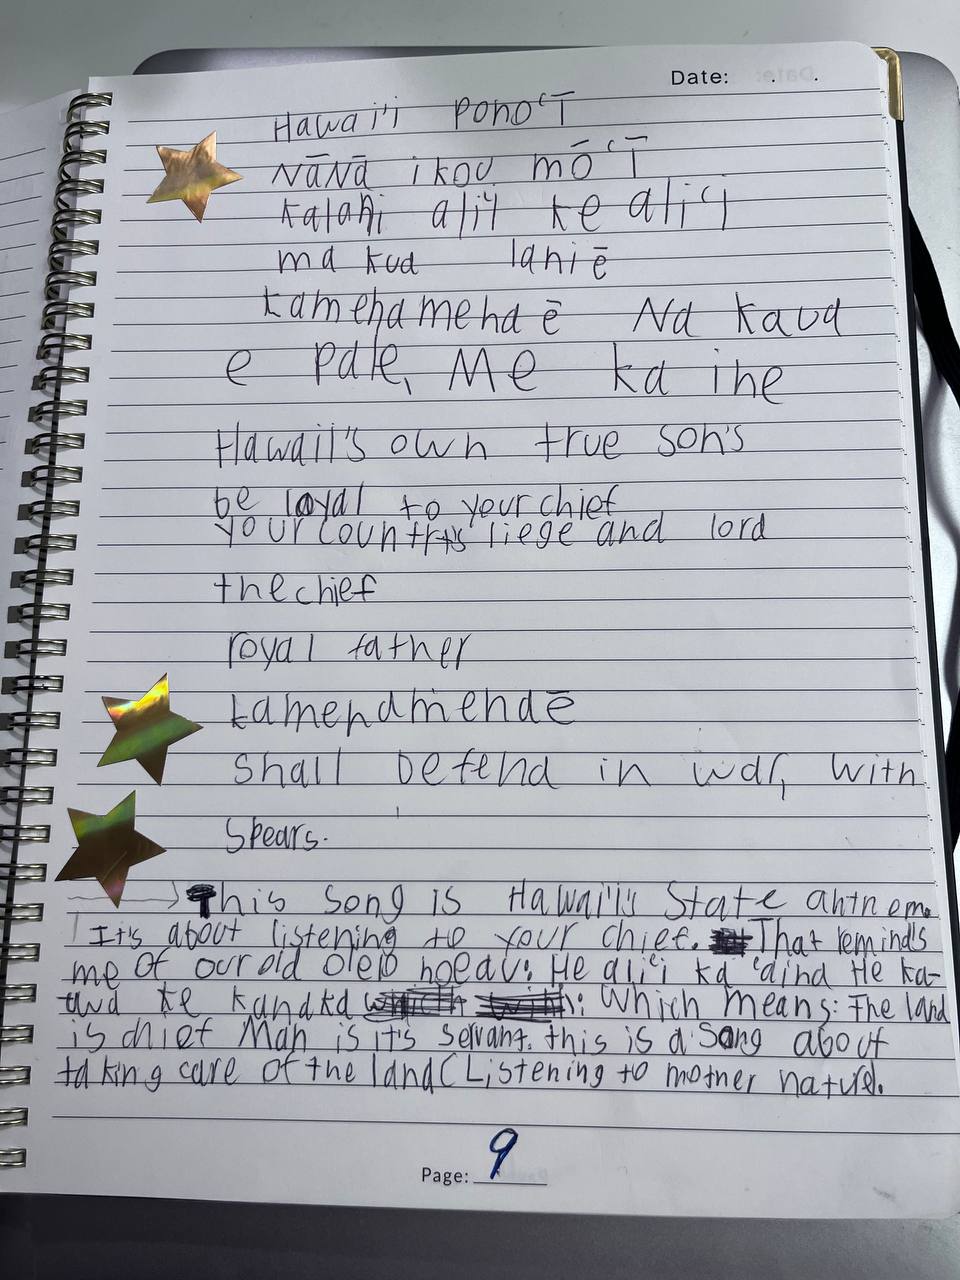 Date: . .
Hawai'i ponoʻī
NāNā i kou mōʻī
kalani aliʻi ke aliʻi
ma kua lani ē
kamehameha ē Na kaua
e pale, Me ka ihe
Hawaii's own true son's
be loyal to your chief
your country's liege and lord
the chief
royal father
kamehameha ē
shall defend in war, with
spears.
This song is Hawai'i's State anthem.
It's about listening to your chief. That remind's
me of our old olelo noeau: He aliʻi ka ʻaina He ka-
uwa ke kanaka : which means: The land
is chief Man is it's servant. this is a song about
taking care of the land (Listening to mother nature).
Page: 9